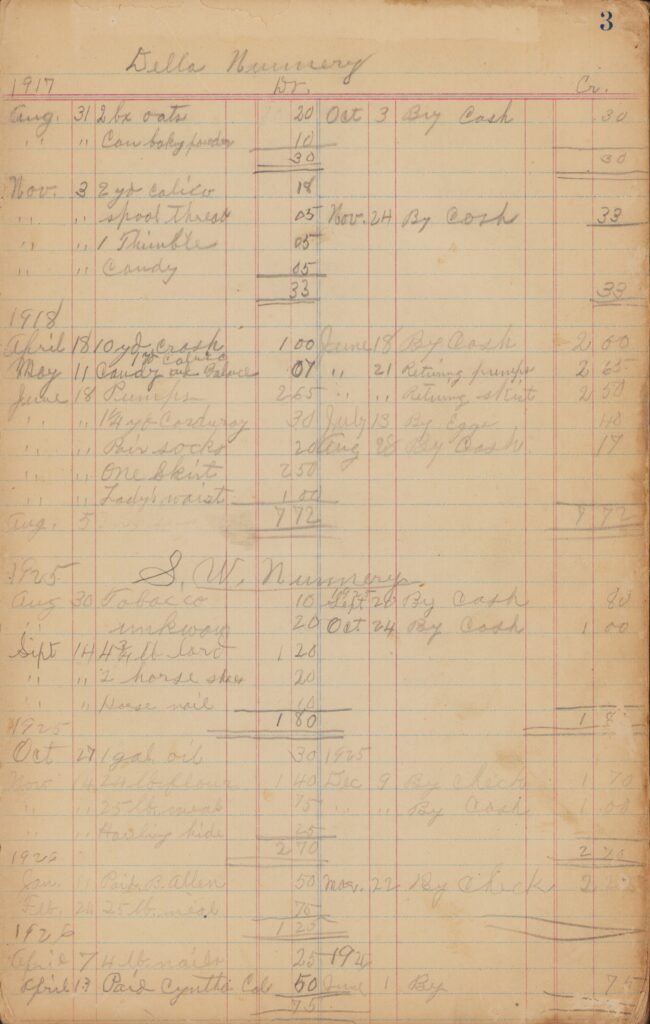 3
Della Nunnery
1917 Dr. Cr.
Aug. 31 2 bx oats 20 Oct 3 By Cash 30
" " Can baky powder 10
30 30
Nov. 3 2 yd calico 18
" " spool thread 05 Nov. 24 By Cash 33
" " 1 Thimble 05
" " Candy 05
33 33
1918
April 18 10 yd crash 1 00 June 18 By Cash 2 00
yd calico
May 11 Candy 07 " 21 Retiring pumps 2 65
June 18 Pumps 2 65 " " Retiring skirt 2 50
" " 1 1/4 yd Corduroy 30 July 13 By Eggs 40
" " Pair socks 20 Aug 28 By Cash 17
" " One Skirt 2 50
" " Lady waist 1 00
Aug. 5 7 72 7 72
1925 S. W. Nunnery
Aug 30 Tobacco 10 1925 Sept 20 By Cash 80
" 20 Oct 24 By Cash 1 00
Sept 14 4 3/4 lb lard 1 20
" " 2 horse shoes 20
" " Horse nail 10
1 80 1 8
1925
Oct 27 1 gal oil 30 1925
Nov 14 24 lb flour 1 40 Dec 9 By Check 1 70
" " 25 lb. meal 75 " " By Cash 1 00
" " Hauling hide 25
2 70 2 70
1926
Jan. 11 Paid B. Allen 50 Mar. 22 By Check 2
Feb. 26 25 lb. meal 75
1926 1 25
April 7 4 lb. nails 25 1926
April 13 Paid Cynthi 50 June 1 By 75
75